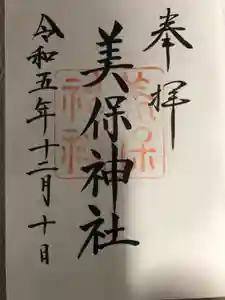 奉拝
美保神社
令和五年十二月十日